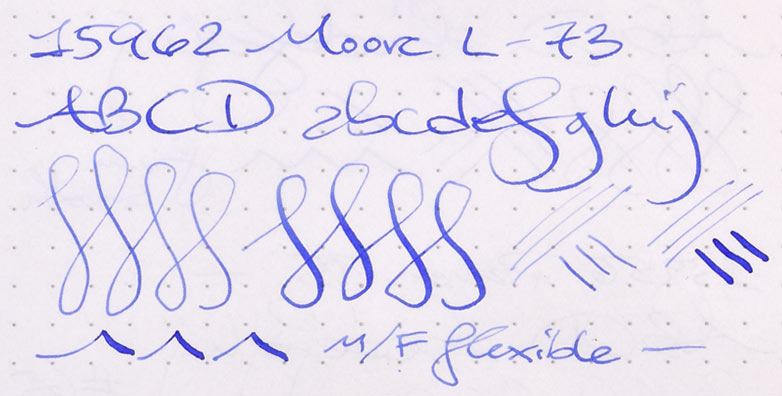 15962 Moore L-73
ABCD abcdefghij
M/F flexible —